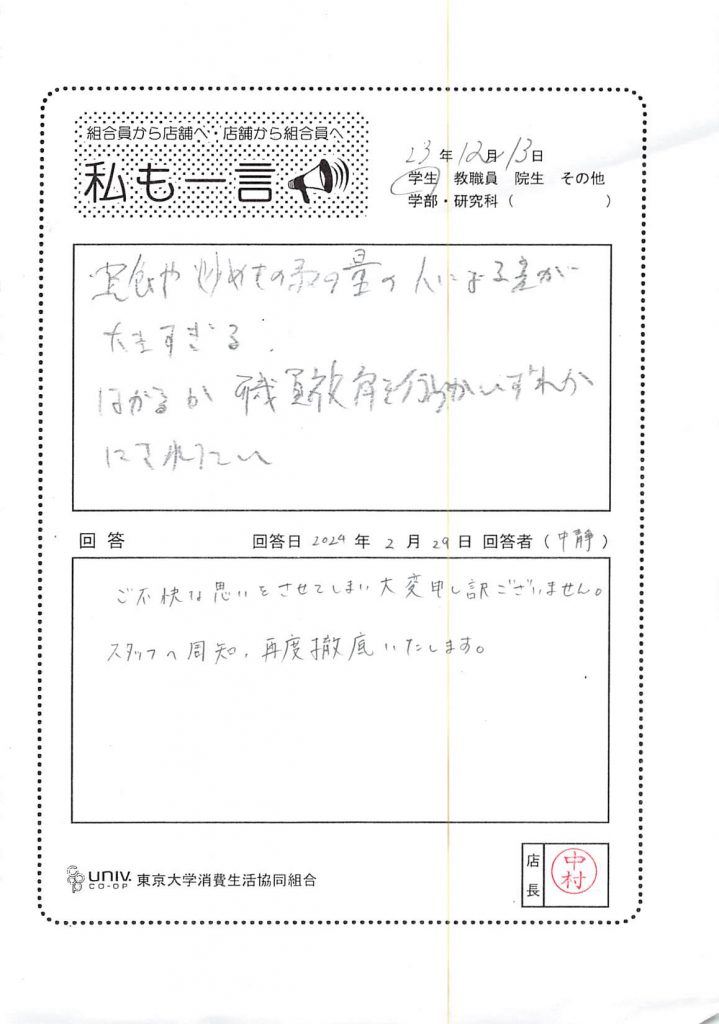 組合員から店舗へ・店舗から組合員へ
私も一言
23年12月13日
学生 教職員 院生 その他
学部・研究科( )
定食や炒めものの量の人による差が
大きすぎる。
はかるか 職員教育を行うかいずれか
にされたい
回答 回答日 2024年2月29日 回答者(中静)
ご不快な思いをさせてしまい大変申し訳ございません。
スタッフへ周知、再度徹底いたします。
UNIV.
CO-OP
東京大学消費生活協同組合
店長
中村